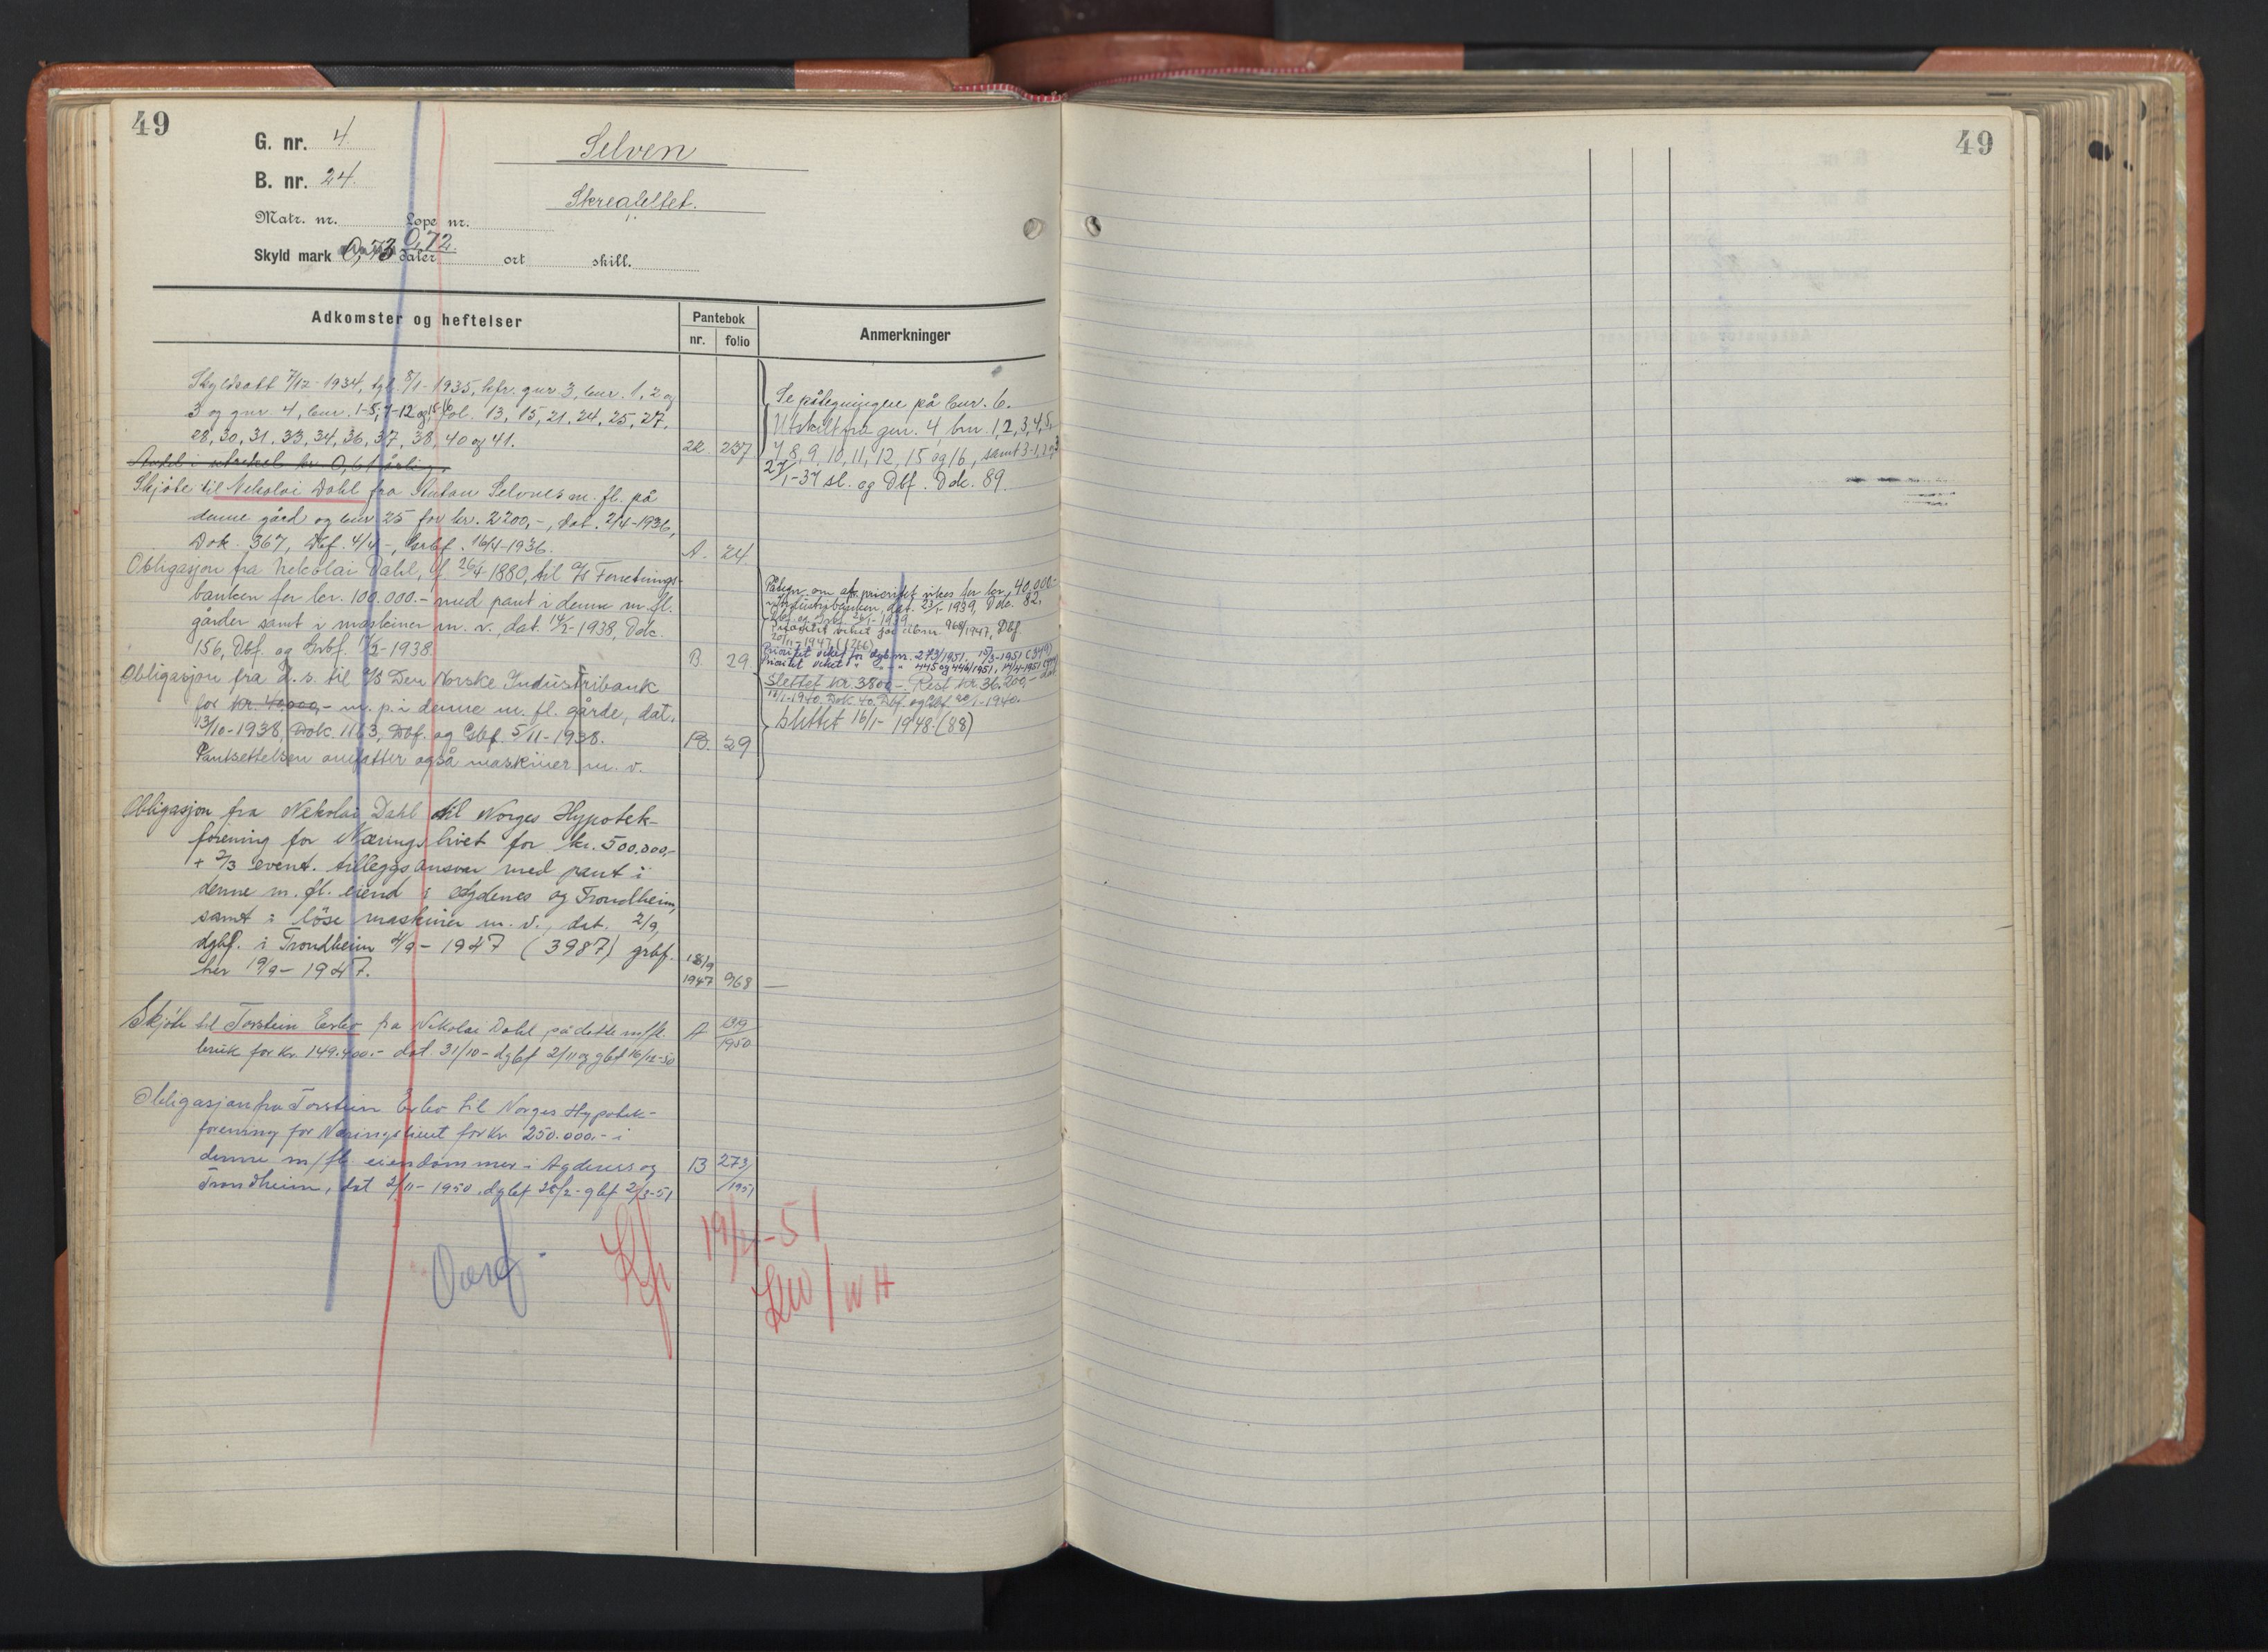 49
G. nr. 4
B. nr. 24.
Matr. nr. Løpe nr.
Skyld mark 0,73 daler 0,72. ort skill.
Selven
Skrealeltet.
Adkomster og heftelser
Pantebok
nr. folio
Anmerkninger
Skyldsatt 7/12-1934, tgl. 8/1-1935, kfr. gnr 3, bnr. 1, 2 og
3 og gnr. 4, bnr. 1-5, 7-12 og 15-16 fol. 13, 15, 21, 24, 25, 27,
28, 30, 31, 33, 34, 36, 37, 38, 40 og 41. 22 237
Se påtegningene på bnr. 6.
Utskilt fra gnr. 4, bnr 1,2,3,4,5,
7,8,9,10,11,12,15 og 16, samt 3-1,2 og 3
27/1-37 sl. og Dbf. Dok. 89.
Skjöte til Nekolai Dahl fra Anton Selvnes m. fl. på
denne gård og bnr 25 for kr. 2200,-, dat. 2/4-1936,
Dok. 367, Dbf. 4/4-, Grbf. 16/4-1936. A. 24.
Obligasjon fra Nekolai Dahl, f. 26/4-1880, til A/S Forretnings-
banken for kr. 100.000.- med pant i denne m. fl.
gårder samt i maskiner m. v., dat. 14/2-1938, Dok.
156, Dbf. og Grbf. 17/2-1938. B. 29
Påtegn. om at prioritet vikes for kr. 40.000.-
Industribanken, dat. 23/1-1939, Dok. 82,
Dbf. og Grbf. 26/1-1939.
Prioritet veket for dbnr 968/1947, Dbf.
20/11-1947 (1266)
Prioritet veket for dgb.nr. 273/1951, 15/3-1951 (349)
Prioritet veket " " - " 445 og 446/1951, 14/4-1951
Obligasjon fra d. s. til A/S Den Norske Industribank
for kr. 40.000,- m. p. i denne m. fl. gårde, dat.
13/10-1938, Dok. 1163, Dbf. og Gbf. 5/11-1938. B. 29
Pantsettelsen omfatter også maskiner m. v.
Slettet kr. 3800,-. Rest kr. 36.200,- dat
18/1-1940. Dok. 40, Dbf. og Gbf. 20/1-1940.
Slettet 16/1-1948.(88)
Obligasjon fra Nekolai Dahl til Norges Hypotek-
forening for Næringslivet for kr. 500.000,-
+ 2/3 event. tilleggsansvar med pant i
denne m. fl. eiend. i Agdenes og Trondheim,
samt i löse maskiner m. v., dat. 2/9,
dgbf. i Trondheim 4/9-1947 (3987) grbf.
her 19/9-1947. 18/9 1947 968 —
Skjöte til Torstein Erbo fra Nekolai Dahl på dette m/fl.
bruk for kr. 149.400.- dat. 31/10- dgbf 2/11 og gbf 16/12-50 A 1950
Obligasjon fra Torstein Erbo til Norges Hypotek-
forening for Næringslivet for kr 250.000.- i
denne m/fl. eiendommer i Agdenes og B 273/
Trondheim, dat 2/11-1950, dgbf 28/2- gbf 2/3-51 /1951
Overf.
Kfr 19/11-51
LW/WH
49